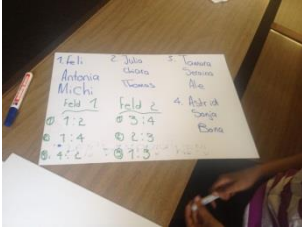 1. Feli
Antonia
Michi
2. Julia
Chiara
Thomas
3. Tamara
Seraina
Alia
4. Astrid
Sonja
Feld 1
① 1:2
② 1:4
③ 4:2
Feld 2
① 3:4
② 2:3
③ 1:3